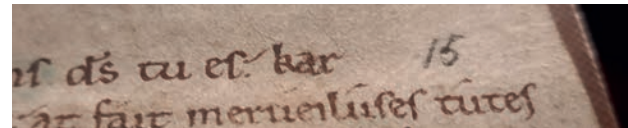 ds tu es. kar 15
fait merueiluses tutes